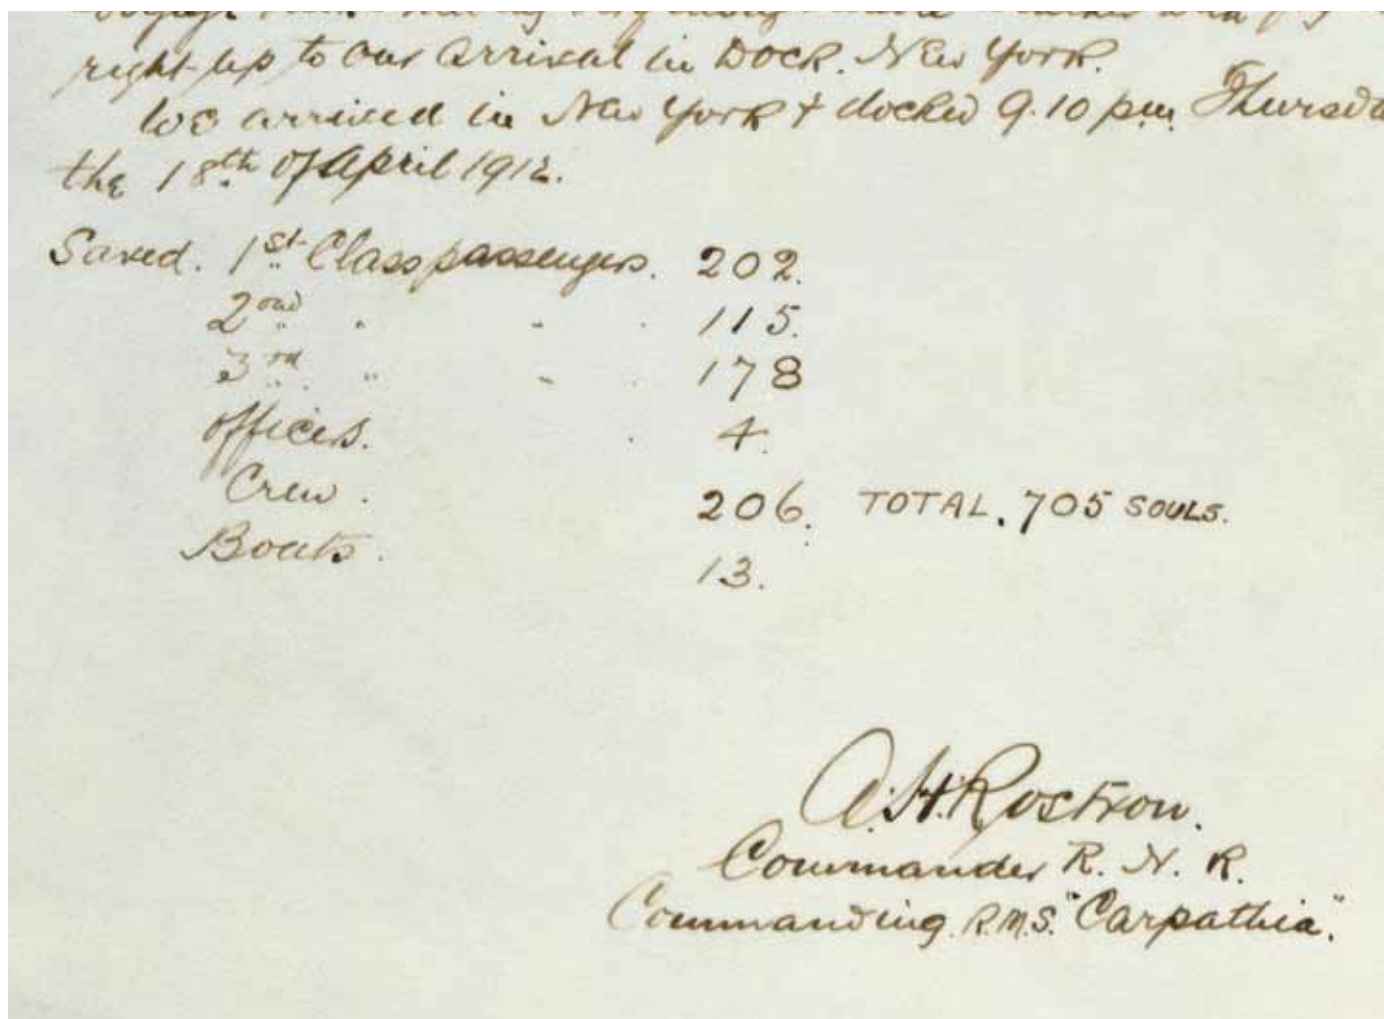 right up to our arrival in Dock. New York.
We arrived in New York & docked 9.10 p.m. Thursda
the 18th of April 1912.
Saved. 1st Class passengers. 202.
2nd " " . 115.
3rd " " . 178
Officers. . 4.
Crew. 206. TOTAL. 705 SOULS.
Boats. 13.
A. H. Rostron.
Commander R. N. R.
Commanding R.M.S. "Carpathia".